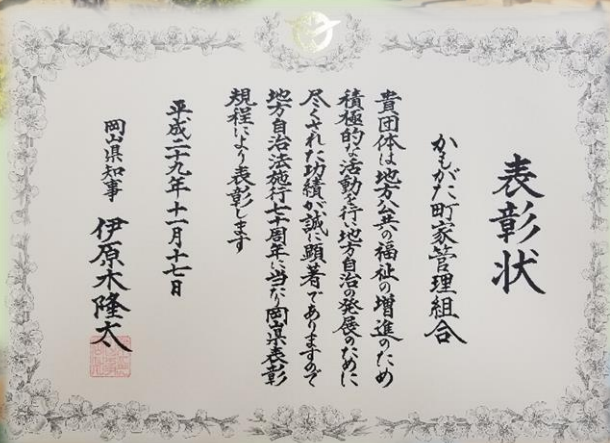 表彰状
かもがた町家管理組合
貴団体は地方公共の福祉の増進のため
積極的な活動を行い地方自治の発展のために
尽くされた功績が誠に顕著でありますので
地方自治法施行七十周年に当たり岡山県表彰
規程により表彰します
平成二十九年十一月十七日
岡山県知事 伊原木隆太